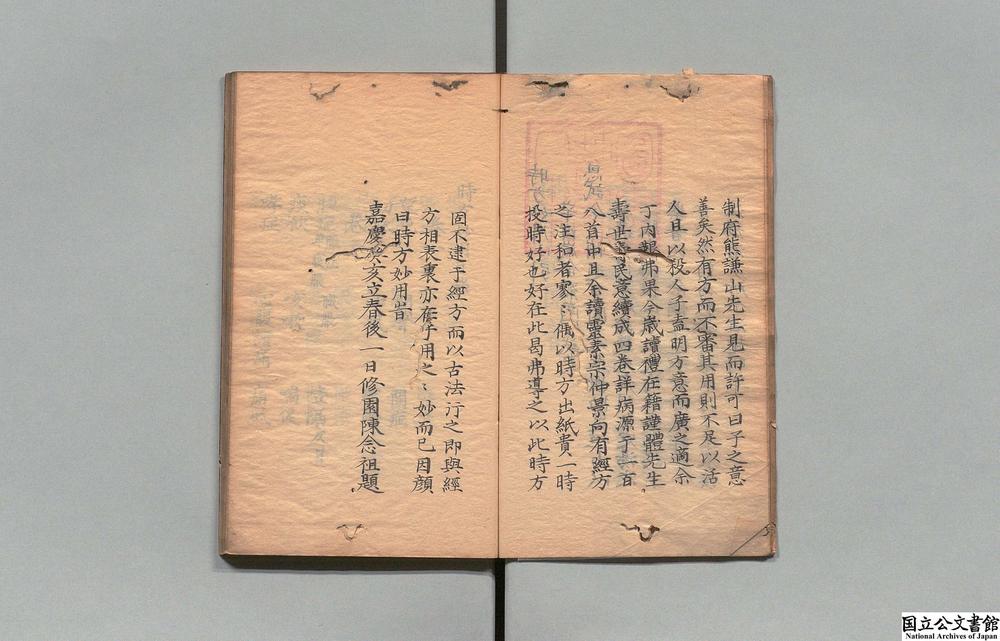 制府熊謙山先生見而許可曰子之意
善矣然有方而不審其用則不足以活
人且以殺人子盍明方意而廣之適余
丁內艱弗果今歲讀禮在籍謹體先生
壽世壽民意續成四卷詳病源于一百
八首中且余讀靈素宗仲景向有經方
之注和者寥〻偶以時方出紙貴一時
投時好也好在此曷弗導之以此時方
固不逮于經方而以古法行之即與經
方相表裏亦在乎用之〻妙而已因顏
曰時方妙用
嘉慶癸亥立春後一日修園陳念祖題
国立公文書館
National Archives of Japan